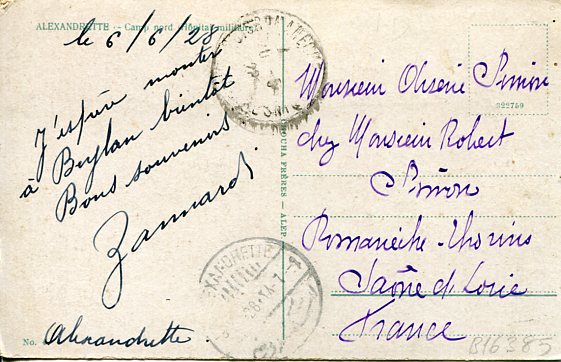 ALEXANDRETTE - Camp nord (Hôpital militaire)
le 6/6/28
J'espère monter
à Beylan bientôt
Bons souvenirs
Zannardi
No.
Alexandrette
ROCHA FRÈRES — ALEP
ALEXANDRETTE
322759
Monsieur Simon
chez Monsieur Robert
Simon
Romanèche-Thorins
Saône et Loire
France
B16385